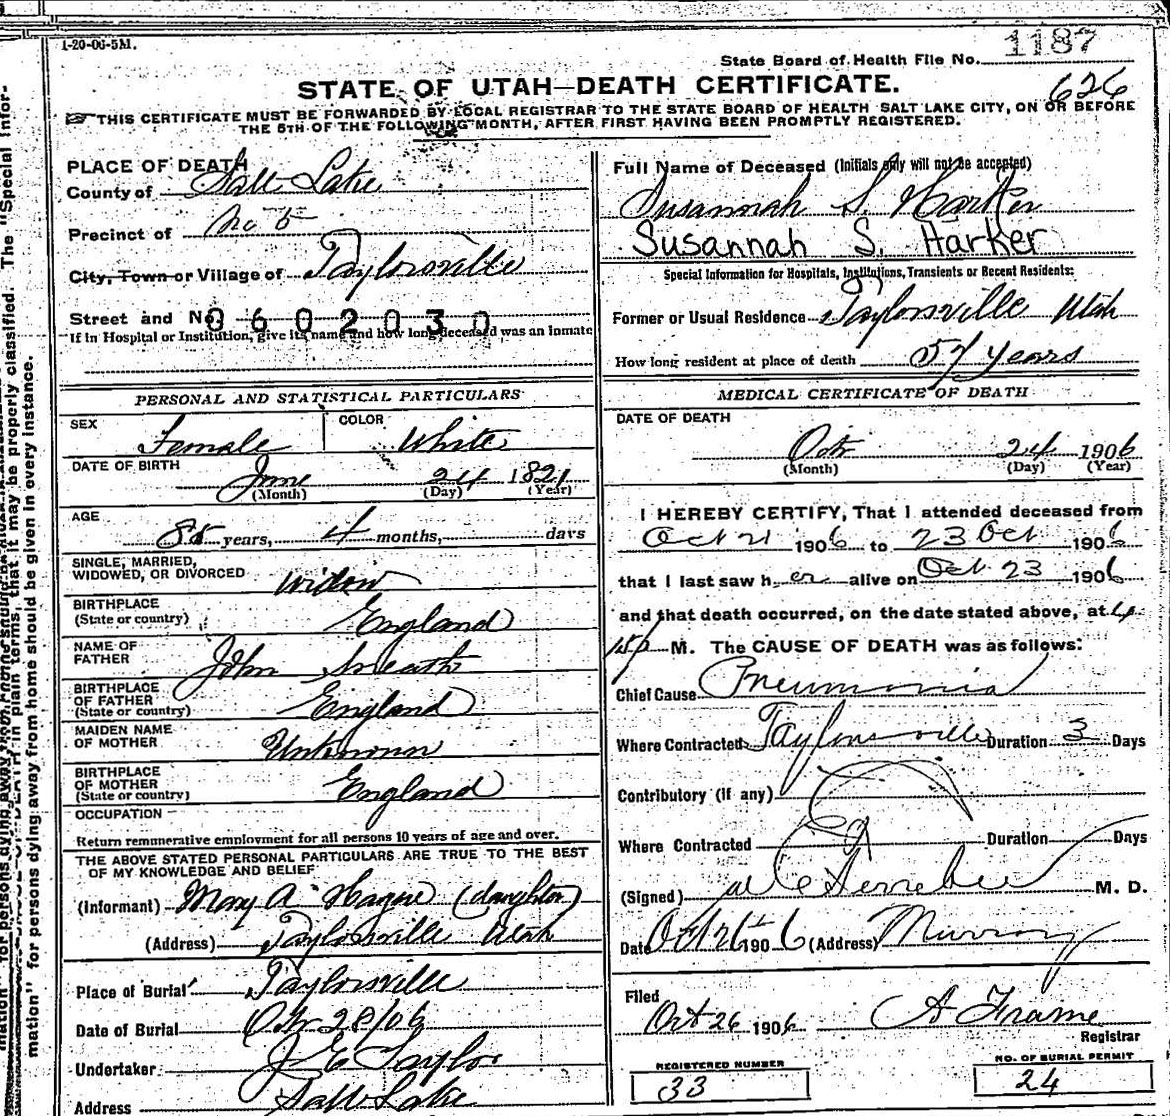 1-20-06-5M.
State Board of Health File No. 1187
STATE OF UTAH—DEATH CERTIFICATE.
626
THIS CERTIFICATE MUST BE FORWARDED BY LOCAL REGISTRAR TO THE STATE BOARD OF HEALTH SALT LAKE CITY, ON OR BEFORE
THE 5TH OF THE FOLLOWING MONTH, AFTER FIRST HAVING BEEN PROMPTLY REGISTERED.
PLACE OF DEATH
County of Salt Lake
Precinct of No 5
City, Town or Village of Taylorsville
Street and No. 0602030
If in Hospital or Institution, give its name and how long deceased was an inmate
PERSONAL AND STATISTICAL PARTICULARS
SEX Female COLOR White
DATE OF BIRTH
June 24 1821
(Month) (Day) (Year)
AGE
85 years, 4 months, days
SINGLE, MARRIED,
WIDOWED, OR DIVORCED Widow
BIRTHPLACE
(State or country) England
NAME OF
FATHER John Sneath
BIRTHPLACE
OF FATHER
(State or country) England
MAIDEN NAME
OF MOTHER Unknown
BIRTHPLACE
OF MOTHER
(State or country) England
OCCUPATION
Return remunerative employment for all persons 10 years of age and over.
THE ABOVE STATED PERSONAL PARTICULARS ARE TRUE TO THE BEST
OF MY KNOWLEDGE AND BELIEF
(Informant) Mary A Hague (daughter)
(Address) Taylorsville Utah
Place of Burial Taylorsville
Date of Burial Oct 28/06
Undertaker J E Taylor
Address Salt Lake
Full Name of Deceased (Initials only will not be accepted)
Susannah S. Harker
Susannah S. Harker
Special Information for Hospitals, Institutions, Transients or Recent Residents:
Former or Usual Residence Taylorsville Utah
How long resident at place of death 57 years
MEDICAL CERTIFICATE OF DEATH
DATE OF DEATH
Oct 24 1906
(Month) (Day) (Year)
I HEREBY CERTIFY, That I attended deceased from
Oct 21 1906 to 23 Oct 1906
that I last saw her alive on Oct 23 1906
and that death occurred, on the date stated above, at 4
M. The CAUSE OF DEATH was as follows:
Chief Cause Pneumonia
Where Contracted Taylorsville Duration 3 Days
Contributory (if any)
Where Contracted Duration Days
(Signed) M. D.
Date Oct 26 1906 (Address) Murray
Filed
Oct 26 1906 A Frame
Registrar
REGISTERED NUMBER
33
NO. OF BURIAL PERMIT
24
mation" for persons dying away from home should be given in every instance.
in plain terms, that it may be properly classified. The "Special Infor-